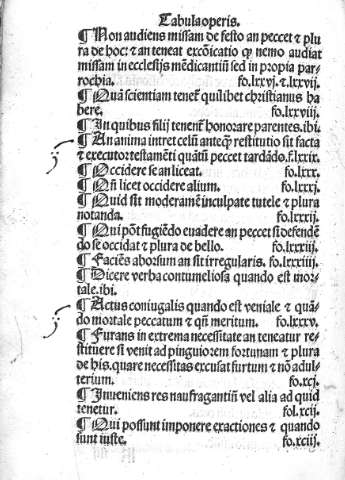 Tabula operis.
¶ Non audiens missam de festo an peccet ⁊ plu
ra de hoc: ⁊ an teneat excõicatio ꝙ nemo audiat
missam in ecclesijs mẽdicantiũ sed in propia par-
rochia. fo.lxxvj.⁊.lxxvij.
¶ Quã scientiam tenet̃ quilibet christianus ha
bere. fo.lxxviij.
¶ In quibus filij tenent̃ honorare parentes.ibi.
¶ An anima intret celũ anteq̃ restitutio sit facta
⁊ executor testamẽti quãtũ peccet tardãdo.f.lxxix.
¶ Occidere se an liceat. fo.lxxx.
¶ Qñ licet occidere alium. fo.lxxxj.
¶ Quid sit moderamẽ inculpate tutele ⁊ plura
notanda. fo.lxxxij.
¶ Qui põt fugiẽdo euadere an peccet si defendẽ
do se occidat ⁊ plura de bello. fo.lxxxiij.
¶ Faciẽs aborsum an sit irregularis. fo.lxxxiiij.
¶ Dicere verba contumeliosa quando est mor-
tale.ibi.
¶ Actus coniugalis quando est veniale ⁊ quã-
do mortale peccatum ⁊ qñ meritum. fo.lxxxv.
¶ Furans in extrema necessitate an teneatur re-
stituere si venit ad pinguiorem fortunam ⁊ plura
de his.quare necessitas excusat furtum ⁊ nõ adul-
terium. fo.xcj.
¶ Inueniens res naufragantiũ vel alia ad quid
tenetur. fol.xcij.
¶ Qui possunt imponere exactiones ⁊ quando
sunt iuste. fo.xciij.